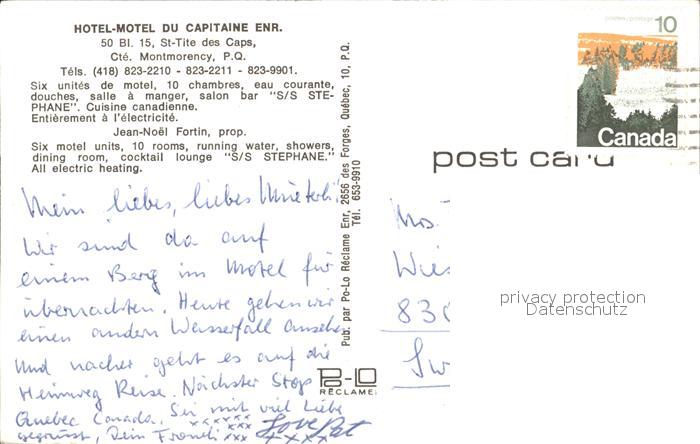 HOTEL-MOTEL DU CAPITAINE ENR.
50 Bl. 15, St-Tite des Caps,
Cté. Montmorency, P.Q.
Téls. (418) 823-2210 - 823-2211 - 823-9901.
Six unités de motel, 10 chambres, eau courante,
douches, salle à manger, salon bar "S/S STE-
PHANE". Cuisine canadienne.
Entièrement à l'électricité.
Jean-Noël Fortin, prop.
Six motel units, 10 rooms, running water, showers,
dining room, cocktail lounge "S/S STEPHANE."
All electric heating.
Mein liebes, liebes Mueterli!
Wir sind da auf
einem Berg im Motel für
übernachten. Heute gehen wir
einen andern Wasserfall ansehen
und nacher geht es auf die
Heimweg Reise. Nächster Stop
Quebec Canada. Sei mit viel Liebe
gegrüsst, Dein
xxxxxx
xxx Love Pat
xxxx
Pub. par Po-Lo Réclame Enr, 2656 des Forges, Québec, 10, P.Q.
Tél. 653-9910
Po-LO
RÉCLAME
postes/postage
10
Canada
post card
Mrs.
Wies
830
Sw
privacy protection
Datenschutz